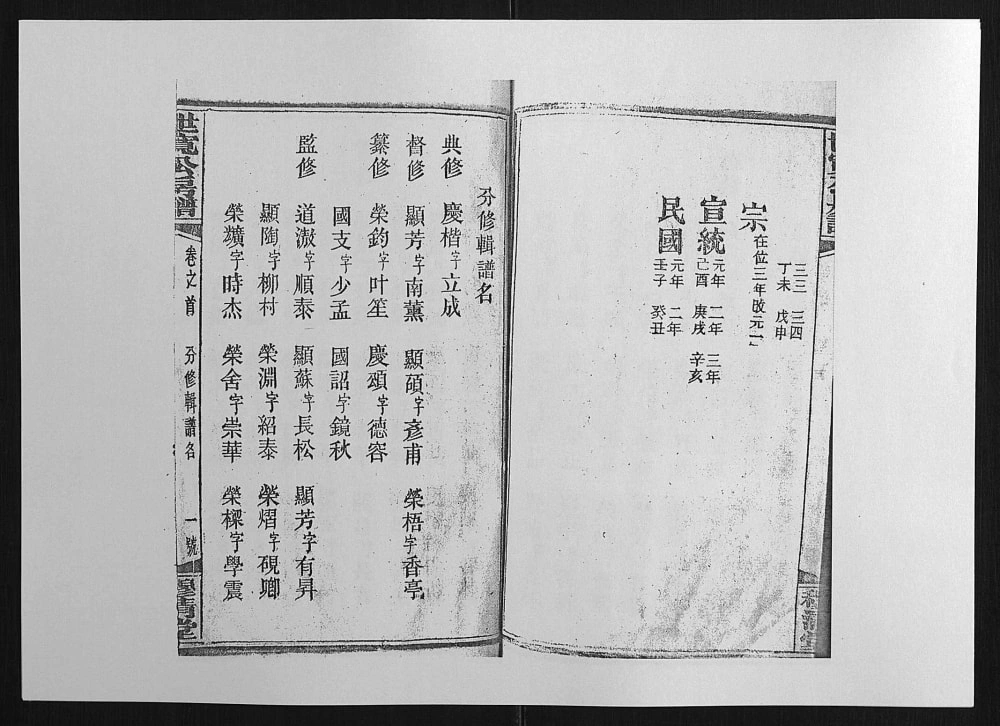 三三 三四
丁未 戊申
宗 在位三年改元一
宣統 元年 二年 三年
己酉 庚戌 辛亥
民國 元年 二年
壬子 癸丑
分修輯譜名
典修 慶楷字立成
督修 顯芳字南薰 顯碩字彥甫 榮梧字香亭
纂修 榮鈞字叶笙 慶頌字德容
國支字少孟 國詔字鏡秋
監修 道澂字順泰 顯蘇字長松 顯芳字有昇
顯陶字柳村 榮淵字紹泰 榮熠字硯卿
榮爌字時杰 榮舍字崇華 榮樑字學震
世寬公房譜 卷之首 分修輯譜名 一號